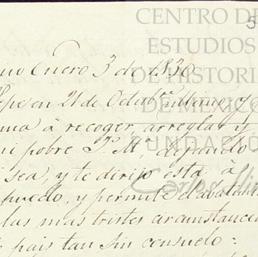 CENTRO DE
ESTUDIOS
DE HISTORIA
DE MEXICO
FUNDACIÓN
5
Enero 3 de 1830
en 21 de Octubre ultimo y
à recoger, arreglar y
mi pobre P. M., dejando
sea, y te dirijo esta à
puedo, y permite el
las mas tristes circunstancias
pais tan sin consuelo: